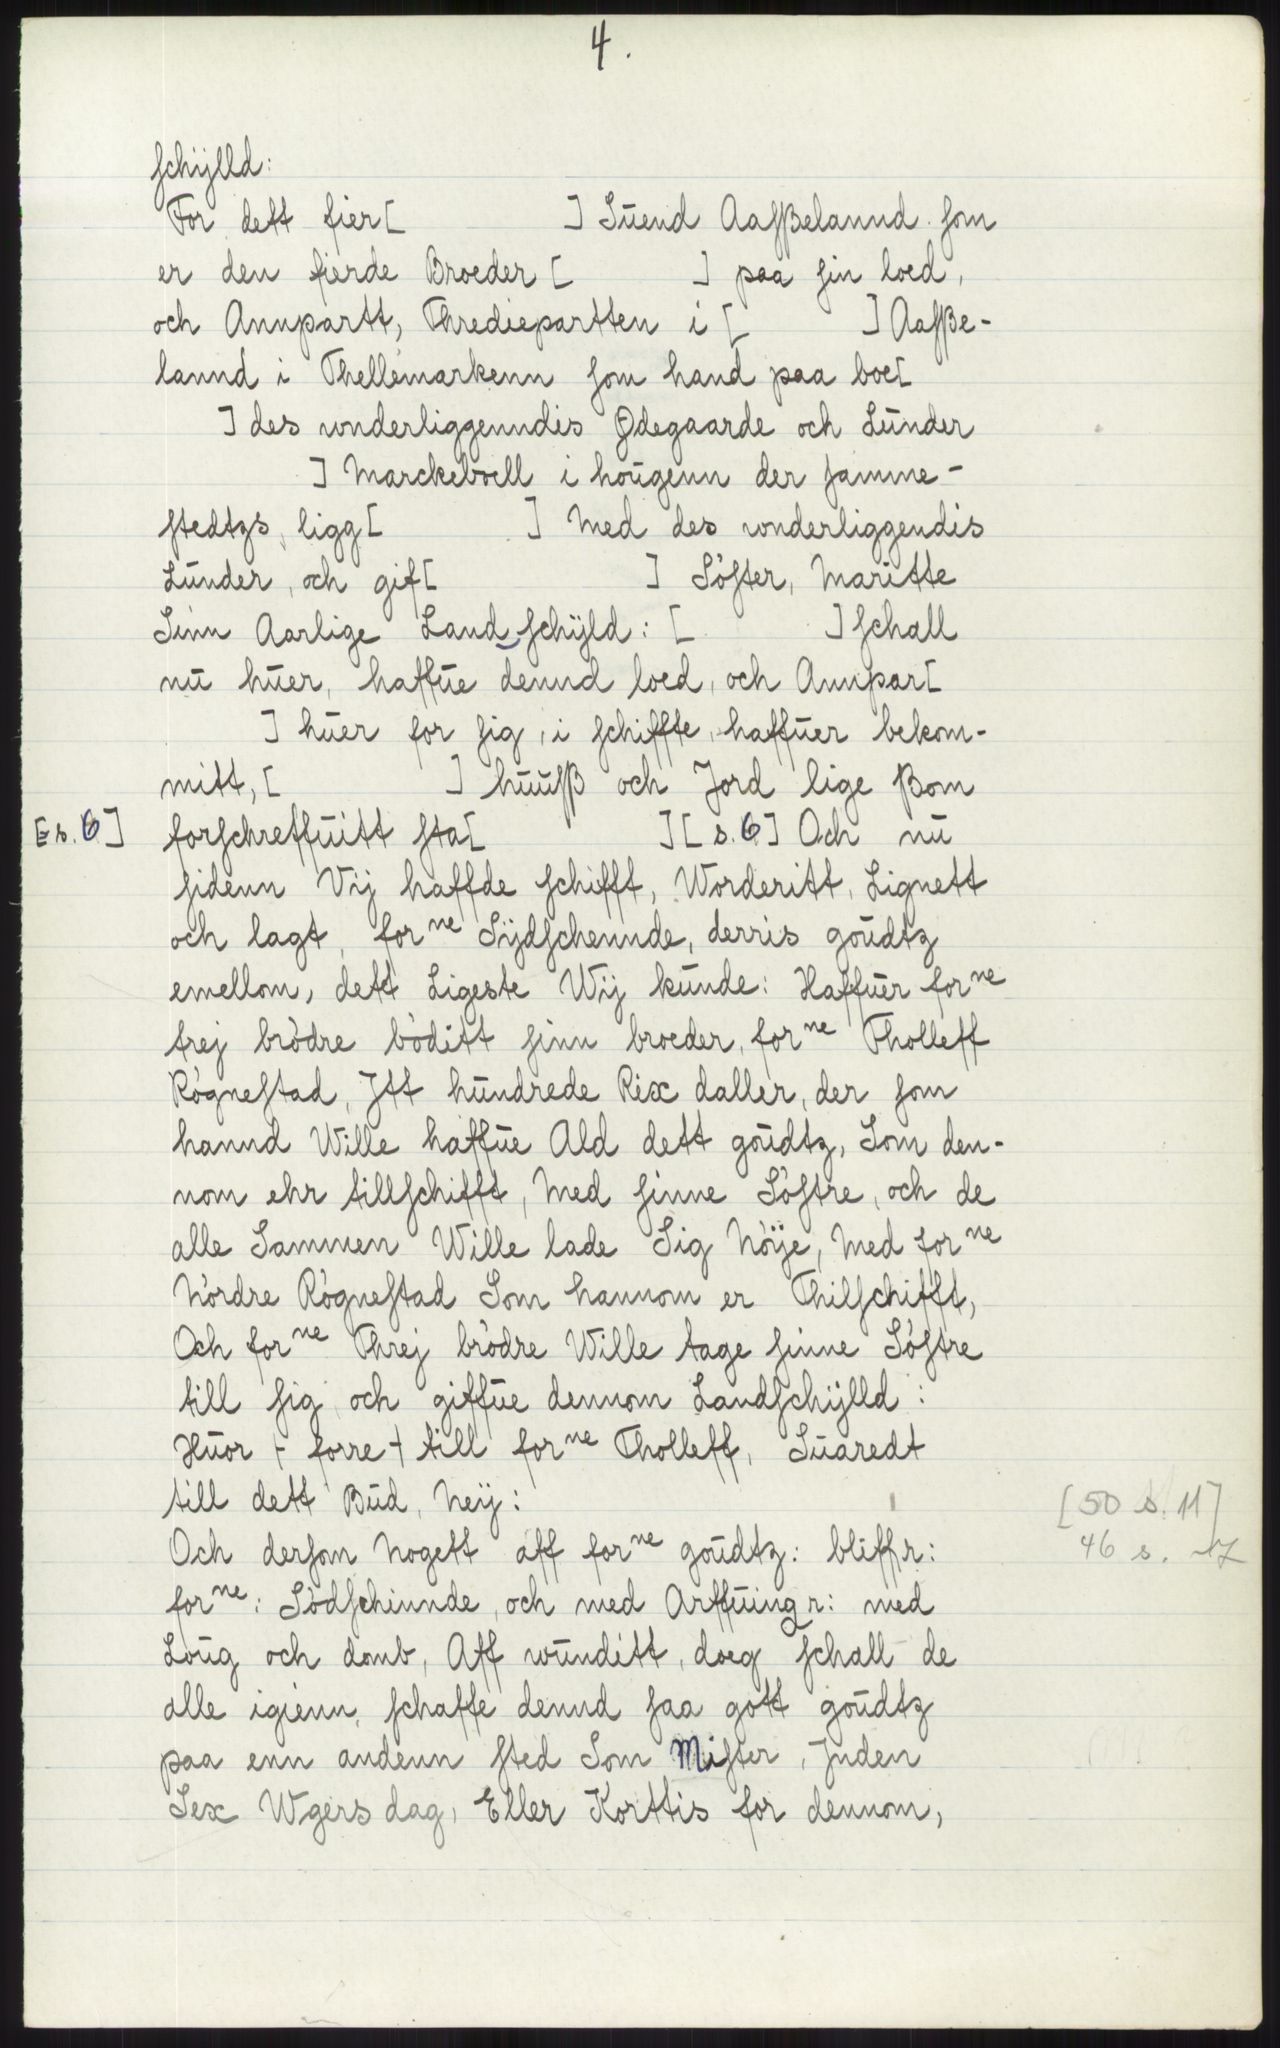 4.
schÿlld:
For dett fier[ ] Suend Aasßelannd som
er den fierde Broeder [ ] paa sin loed,
och Annpartt, Thrediepartten i [ ] Aasße-
lannd i Thellemarkenn som hand paa boe[
] des wnderliggenndis Ødegaarde och Lunder
] Marckeboell i hougenn der samme-
stedtzs, ligg[ ] Med des wnderliggendis
Lunder, och gif[ ] Söster, Maritte
Sinn Aarlige Land schÿld: [ ] schall
nu huer, haffue dennd loed, och Annpar[
] huer for sig, i schiffte, haffuer bekom-
mitt, [ ] huusß och Jord lige ßom
[s. 6] forschreffuitt sta[ ] [s. 6] Och nu
sidenn Vij haffde schifft, Worderitt, Lignett
och lagt, forne Sÿdschennde, derris goudtz
emellom, dett Ligeste Wij kunde: Haffuer forne
trej brödre böditt sinn broeder, forne Tholleff
Rögnestad, Jtt hundrede Rix daller, der som
hannd Wille haffue Ald dett goudtz, Som den-
nom ehr tillschifft, Med sinne Söstre, och de
alle Sammen Wille lade Sig Nöÿe, Med forne
Nördre Rögnestad Som hannom er Thilschifft,
Och forne Threj brödre Wille tage sinne Söstre
till sig, och giffue dennom Landschÿlld:
Huor + forre + till forne Tholleff, Suaredt
till dett Bud, Neÿ:
[50 s. 11]
Och dersom Nogett aff forne goudtz: bliffr:
46 s. 17
forne: Södschinnde, och med Arffuingr: med
Loug och domb, Aff wunditt, doeg schall de
alle igienn, schaffe dennd saa gott goudtz
paa enn andenn sted Som Mister, Jnden
Sex Wgers dag, Eller Korttis for dennom,